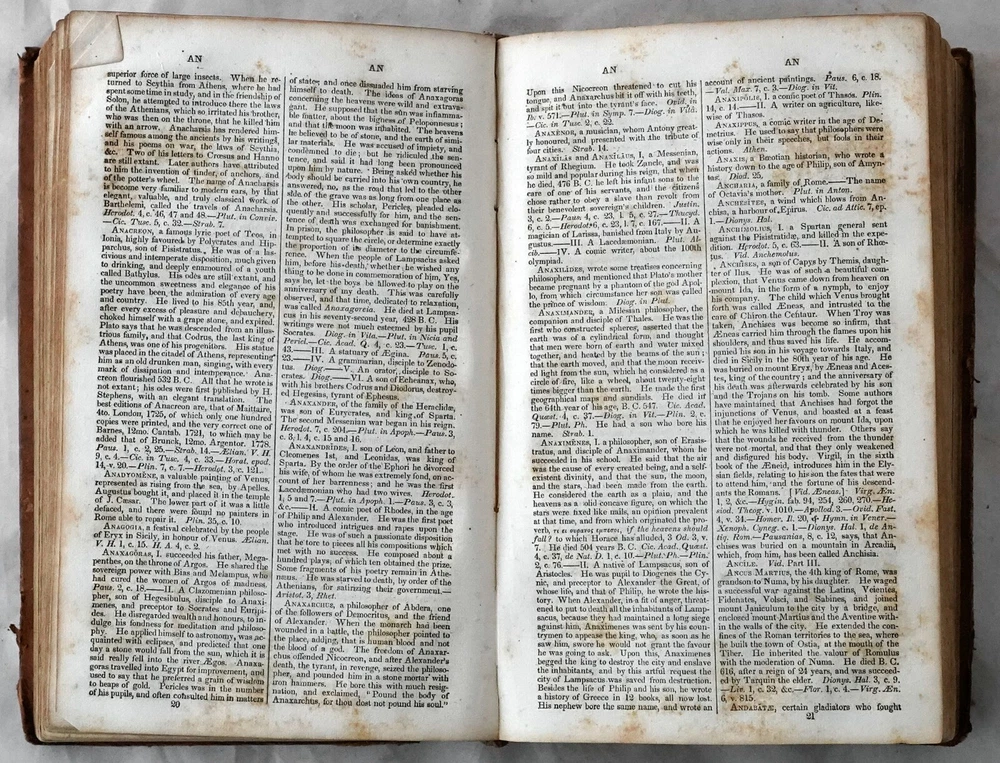 AN
superior force of large insects. When he re-
turned to Scythia from Athens, where he had
spent some time in study, and in the friendship of
Solon, he attempted to introduce there the laws
of the Athenians, which so irritated his brother,
who was then on the throne, that he killed him
with an arrow. Anacharsis has rendered him-
self famous among the ancients by his writings,
and his poems on war, the laws of Scythia,
&c. Two of his letters to Crœsus and Hanno
are still extant. Later authors have attributed
to him the invention of tinder, of anchors, and
of the potter's wheel. The name of Anacharsis
is become very familiar to modern ears, by that
elegant, valuable, and truly classical work of
Barthelemi, called the travels of Anacharsis.
Herodot. 4, c. 46, 47 and 48.—Plut. in Conviv.
—Cic. Tusc. 5, c. 32.—Strab. 7.
ANACREON, a famous lyric poet of Teos, in
Ionia, highly favoured by Polycrates and Hip-
parchus, son of Pisistratus. He was of a las-
civious and intemperate disposition, much given
to drinking, and deeply enamoured of a youth
called Bathyllus. His odes are still extant, and
the uncommon sweetness and elegance of his
poetry have been the admiration of every age
and country. He lived to his 85th year, and,
after every excess of pleasure and debauchery,
choked himself with a grape stone, and expired.
Plato says that he was descended from an illus-
trious family, and that Codrus, the last king of
Athens, was one of his progenitors. His statue
was placed in the citadel of Athens, representing
him as an old drunken man, singing, with every
mark of dissipation and intemperance. Ana-
creon flourished 532 B. C. All that he wrote is
not extant; his odes were first published by H.
Stephens, with an elegant translation. The
best editions of Anacreon are, that of Maittaire,
4to. London, 1725, of which only one hundred
copies were printed, and the very correct one of
Barnes, 12mo. Cantab. 1721, to which may be
added that of Brunck, 12mo. Argentor. 1778.
Paus. 1, c. 2, 25.—Strab. 14.—Ælian. V. H.
9, c. 4.—Cic. in Tusc. 4, c. 33.—Horat. epod.
14, v. 20.—Plin. 7, c. 7.—Herodot. 3, c. 121.
ANADYOMENE, a valuable painting of Venus,
represented as rising from the sea, by Apelles.
Augustus bought it, and placed it in the temple
of J. Cæsar. The lower part of it was a little
defaced, and there were found no painters in
Rome able to repair it. Plin. 35, c. 10.
ANAGOGIA, a festival celebrated by the people
of Eryx in Sicily, in honour of Venus. Ælian.
V. H. 1, c. 15. H. A. 4, c. 2.
ANAXAGÖRAS, I. succeeded his father, Mega-
penthes, on the throne of Argos. He shared the
sovereign power with Bias and Melampus, who
had cured the women of Argos of madness.
Paus. 2, c. 18.——II. A Clazomenian philoso-
pher, son of Hegesibulus, disciple to Anaxi-
menes, and preceptor to Socrates and Euripi-
des. He disregarded wealth and honours, to in-
dulge his fondness for meditation and philoso-
phy. He applied himself to astronomy, was ac-
quainted with eclipses, and predicted that one
day a stone would fall from the sun, which it is
said really fell into the river Ægos. Anaxa-
goras travelled into Egypt for improvement, and
used to say that he preferred a grain of wisdom
to heaps of gold. Pericles was in the number
of his pupils, and often consulted him in matters
20
AN
of state; and once dissuaded him from starving
himself to death. The ideas of Anaxagoras
concerning the heavens were wild and extrava-
gant. He supposed that the sun was inflamma-
ble matter, about the bigness of Peloponnesus;
and that the moon was inhabited. The heavens
he believed to be of stone, and the earth of simi-
lar materials. He was accused of impiety, and
condemned to die; but he ridiculed the sen-
tence, and said it had long been pronounced
upon him by nature. Being asked whether his
body should be carried into his own country, he
answered, no, as the road that led to the other
side of the grave was as long from one place as
the other. His scholar, Pericles, pleaded elo-
quently and successfully for him, and the sen-
tence of death was exchanged for banishment.
In prison, the philosopher is said to have at-
tempted to square the circle, or determine exactly
the proportion of its diameter to the circumfe-
rence. When the people of Lampsacus asked
him, before his death, whether he wished any
thing to be done in commemoration of him, Yes,
says he, let the boys be allowed to play on the
anniversary of my death. This was carefully
observed, and that time, dedicated to relaxation,
was called Anaxagoreia. He died at Lampsa-
cus in his seventy-second year, 428 B. C. His
writings were not much esteemed by his pupil
Socrates. Diog. in Vita.—Plut. in Nicia and
Pericl.—Cic. Acad. Q. 4, c. 23.—Tusc. 1, c.
43.——III. A statuary of Ægina. Paus. 5, c.
23.——IV. A grammarian, disciple to Zenodo-
tus. Diog.——V. An orator, disciple to So-
crates. Diog.——VI. A son of Echeanax, who,
with his brothers Codrus and Diodorus, destroy-
ed Hegesias, tyrant of Ephesus.
ANAXANDER, of the family of the Heraclidæ,
was son of Eurycrates, and king of Sparta.
The second Messenian war began in his reign.
Herodot. 7, c. 204.—Plut. in Apoph.—Paus. 3,
c. 3, l. 4, c. 15 and 16.
ANAXANDRIDES, I. son of Léon, and father to
Cleomenes 1st, and Leonidas, was king of
Sparta. By the order of the Ephori he divorced
his wife, of whom he was extremely fond, on ac-
count of her barrenness; and he was the first
Lacedæmonian who had two wives. Herodot.
1, 5 and 7.—Plut. in Apoph. 1.—Paus. 3, c. 3,
&c.——II. A comic poet of Rhodes, in the age
of Philip and Alexander. He was the first poet
who introduced intrigues and rapes upon the
stage. He was of such a passionate disposition
that he tore to pieces all his compositions which
met with no success. He composed about a
hundred plays, of which ten obtained the prize.
Some fragments of his poetry remain in Athe-
næus. He was starved to death, by order of the
Athenians, for satirizing their government.—
Aristot. 3, Rhet.
ANAXARCHUS, a philosopher of Abdera, one
of the followers of Democritus, and the friend
of Alexander. When the monarch had been
wounded in a battle, the philosopher pointed to
the place, adding, that is human blood and not
the blood of a god. The freedom of Anaxar-
chus offended Nicocreon, and after Alexander's
death, the tyrant, in revenge, seized the philoso-
pher, and pounded him in a stone mortar with
iron hammers. He bore this with much resig-
nation, and exclaimed, "Pound the body of
Anaxarchus, for thou dost not pound his soul."
AN
Upon this Nicocreon threatened to cut his
tongue, and Anaxarchus bit it off with his teeth,
and spit it out into the tyrant's face. Ovid. in
Ib. v. 571.—Plut. in Symp. 7.—Diog. in Vitâ.
—Cic. in Tusc. 2, c. 22.
ANAXENOR, a musician, whom Antony great-
ly honoured, and presented with the tribute of
four cities. Strab. 14.
ANAXILAS and ANAXILAUS, I. a Messenian,
tyrant of Rhegium. He took Zancle, and was
so mild and popular during his reign, that when
he died, 476 B. C. he left his infant sons to the
care of one of his servants, and the citizens
chose rather to obey a slave than revolt from
their benevolent sovereign's children. Justin.
3, c. 2.—Paus. 4, c. 23, l. 5, c. 27.—Thucyd.
6, c. 5.—Herodot. 6, c. 23, l. 7, c. 167.——II. A
magician of Larissa, banished from Italy by Au-
gustus.——III. A Lacedæmonian. Plut. Al-
cib.——IV. A comic writer, about the 100th
olympiad.
ANAXILIDES, wrote some treatises concerning
philosophers, and mentioned that Plato's mother
became pregnant by a phantom of the god Apol-
lo, from which circumstance her son was called
the prince of wisdom. Diog. in Plut.
ANAXIMANDER, a Milesian philosopher, the
companion and disciple of Thales. He was the
first who constructed spheres, asserted that the
earth was of a cylindrical form, and thought
that men were born of earth and water mixed
together, and heated by the beams of the sun;
that the earth moved, and that the moon receiv-
ed light from the sun, which he considered as a
circle of fire, like a wheel, about twenty-eight
times bigger than the earth. He made the first
geographical maps and sundials. He died in
the 64th year of his age, B. C. 547. Cic. Acad.
Quæst. 4, c. 37.—Diog. in Vit.—Plin. 2, c.
79.—Plut. Ph. He had a son who bore his
name. Strab. 1.
ANAXIMENES, I. a philosopher, son of Erasis-
tratus, and disciple of Anaximander, whom he
succeeded in his school. He said that the air
was the cause of every created being, and a self-
existent divinity, and that the sun, the moon,
and the stars, had been made from the earth.
He considered the earth as a plain, and the
heavens as a solid concave figure, on which the
stars were fixed like nails, an opinion prevalent
at that time, and from which originated the pro-
verb, if the heavens should
fall? to which Horace has alluded, 3 Od. 3, v.
7. He died 504 years B. C. Cic. Acad. Quæst.
4, c. 37, de Nat. D. 1, c. 10.—Plut. Ph.—Plin.
2, c. 76.——II. A native of Lampsacus, son of
Aristocles. He was pupil to Diogenes the Cy-
nic, and preceptor to Alexander the Great, of
whose life, and that of Philip, he wrote the his-
tory. When Alexander, in a fit of anger, threat-
ened to put to death all the inhabitants of Lamp-
sacus, because they had maintained a long siege
against him, Anaximenes was sent by his coun-
trymen to appease the king, who, as soon as he
saw him, swore he would not grant the favour
he was going to ask. Upon this, Anaximenes
begged the king to destroy the city and enslave
the inhabitants, and by this artful request the
city of Lampsacus was saved from destruction.
Besides the life of Philip and his son, he wrote
a history of Greece in 12 books, all now lost.
His nephew bore the same name, and wrote an
AN
account of ancient paintings. Paus. 6, c. 18.
—Val. Max. 7, c. 3.—Diog. in Vit.
ANAXIPOLIS, I. a comic poet of Thasos. Plin.
14, c. 14.——II. A writer on agriculture, like-
wise of Thasos.
ANAXIPPUS, a comic writer in the age of De-
metrius. He used to say that philosophers were
wise only in their speeches, but fools in their
actions. Athen.
ANAXIS, a Bœotian historian, who wrote a
history down to the age of Philip, son of Amyn-
tas. Diod. 25.
ANCHARIA, a family of Rome.——The name
of Octavia's mother. Plut. in Anton.
ANCHESITES, a wind which blows from An-
chisa, a harbour of Epirus. Cic. ad Attic. 7, ep.
1.—Dionys. Hal.
ANCHIMOLIUS, I. a Spartan general sent
against the Pisistratidæ, and killed in the expe-
dition. Herodot. 5, c. 63.——II. A son of Rhœ-
tus. Vid. Anchemolus.
ANCHISES, a son of Capys by Themis, daugh-
ter of Ilus. He was of such a beautiful com-
plexion, that Venus came down from heaven on
mount Ida, in the form of a nymph, to enjoy
his company. The child which Venus brought
forth was called Æneas, and intrusted to the
care of Chiron the Centaur. When Troy was
taken, Anchises was become so infirm, that
Æneas carried him through the flames upon his
shoulders, and thus saved his life. He accom-
panied his son in his voyage towards Italy, and
died in Sicily in the 80th year of his age. He
was buried on mount Eryx, by Æneas and Aces-
tes, king of the country; and the anniversary of
his death was afterwards celebrated by his son
and the Trojans on his tomb. Some authors
have maintained, that Anchises had forgot the
injunctions of Venus, and boasted at a feast
that he enjoyed her favours on mount Ida, upon
which he was killed with thunder. Others say
that the wounds he received from the thunder
were not mortal, and that they only weakened
and disfigured his body. Virgil, in the sixth
book of the Æneid, introduces him in the Ely-
sian fields, relating to his son the fates that were
to attend him, and the fortune of his descend-
ants the Romans. [Vid. Æneas.] Virg. Æn.
1, 2, &c.—Hygin. fab. 94, 254, 260, 270.—He-
siod. Theog. v. 1010.—Apollod. 3.—Ovid. Fast.
4, v. 34.—Homer. Il. 20, & Hymn. in Vener.—
Xenoph. Cyneg. c. 1.—Dionys. Hal. 1, de An-
tiq. Rom.—Pausanias, 8, c. 12, says, that An-
chises was buried on a mountain in Arcadia,
which, from him, has been called Anchisia.
ANCILE. Vid. Part III.
ANCUS MARTIUS, the 4th king of Rome, was
grandson to Numa, by his daughter. He waged
a successful war against the Latins, Veientes,
Fidenates, Volsci, and Sabines, and joined
mount Janiculum to the city by a bridge, and
enclosed mount Martius and the Aventine with-
in the walls of the city. He extended the con-
fines of the Roman territories to the sea, where
he built the town of Ostia, at the mouth of the
Tiber. He inherited the valour of Romulus
with the moderation of Numa. He died B. C.
616, after a reign of 24 years, and was succeed-
ed by Tarquin the elder. Dionys. Hal. 3, c. 9.
—Liv. 1, c. 32, &c.—Flor. 1, c. 4.—Virg. Æn.
6, v. 815.
ANDABATÆ, certain gladiators who fought
21